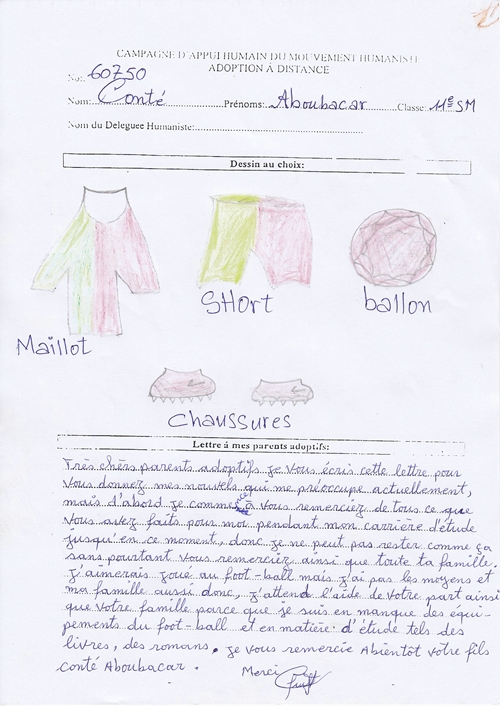 CAMPAGNE D'APPUI HUMAIN DU MOUVEMENT HUMANISTE
ADOPTION À DISTANCE
No: 60750
Nom: Conté Prénoms: Aboubacar Classe: 11e SM
Nom du Deleguee Humaniste:
Dessin au choix:
Maillot
SHort
ballon
Chaussures
Lettre à mes parents adoptifs:
Très chèrs parents adoptifs je vous écris cette lettre pour
Vous donnez mes nouvels qui me préoccupe actuellement,
mais d'abord je commence à vous remerciez de tous ce que
Vous avez faits pour moi pendant mon carrière d'étude
jusqu'en ce moment, donc je ne peut pas rester comme ça
sans pourtant vous remerciez ainsi que toute ta famille.
J'aimerais joué au foot-ball mais j'ai pas les moyens et
ma famille aussi donc, j'attend l'aide de votre part ainsi
que votre famille parce que je suis en manque des équi-
pements du foot-ball et en matière d'étude tels des
livres, des romans. je vous remercie Abientôt votre fils
conté Aboubacar. Merci